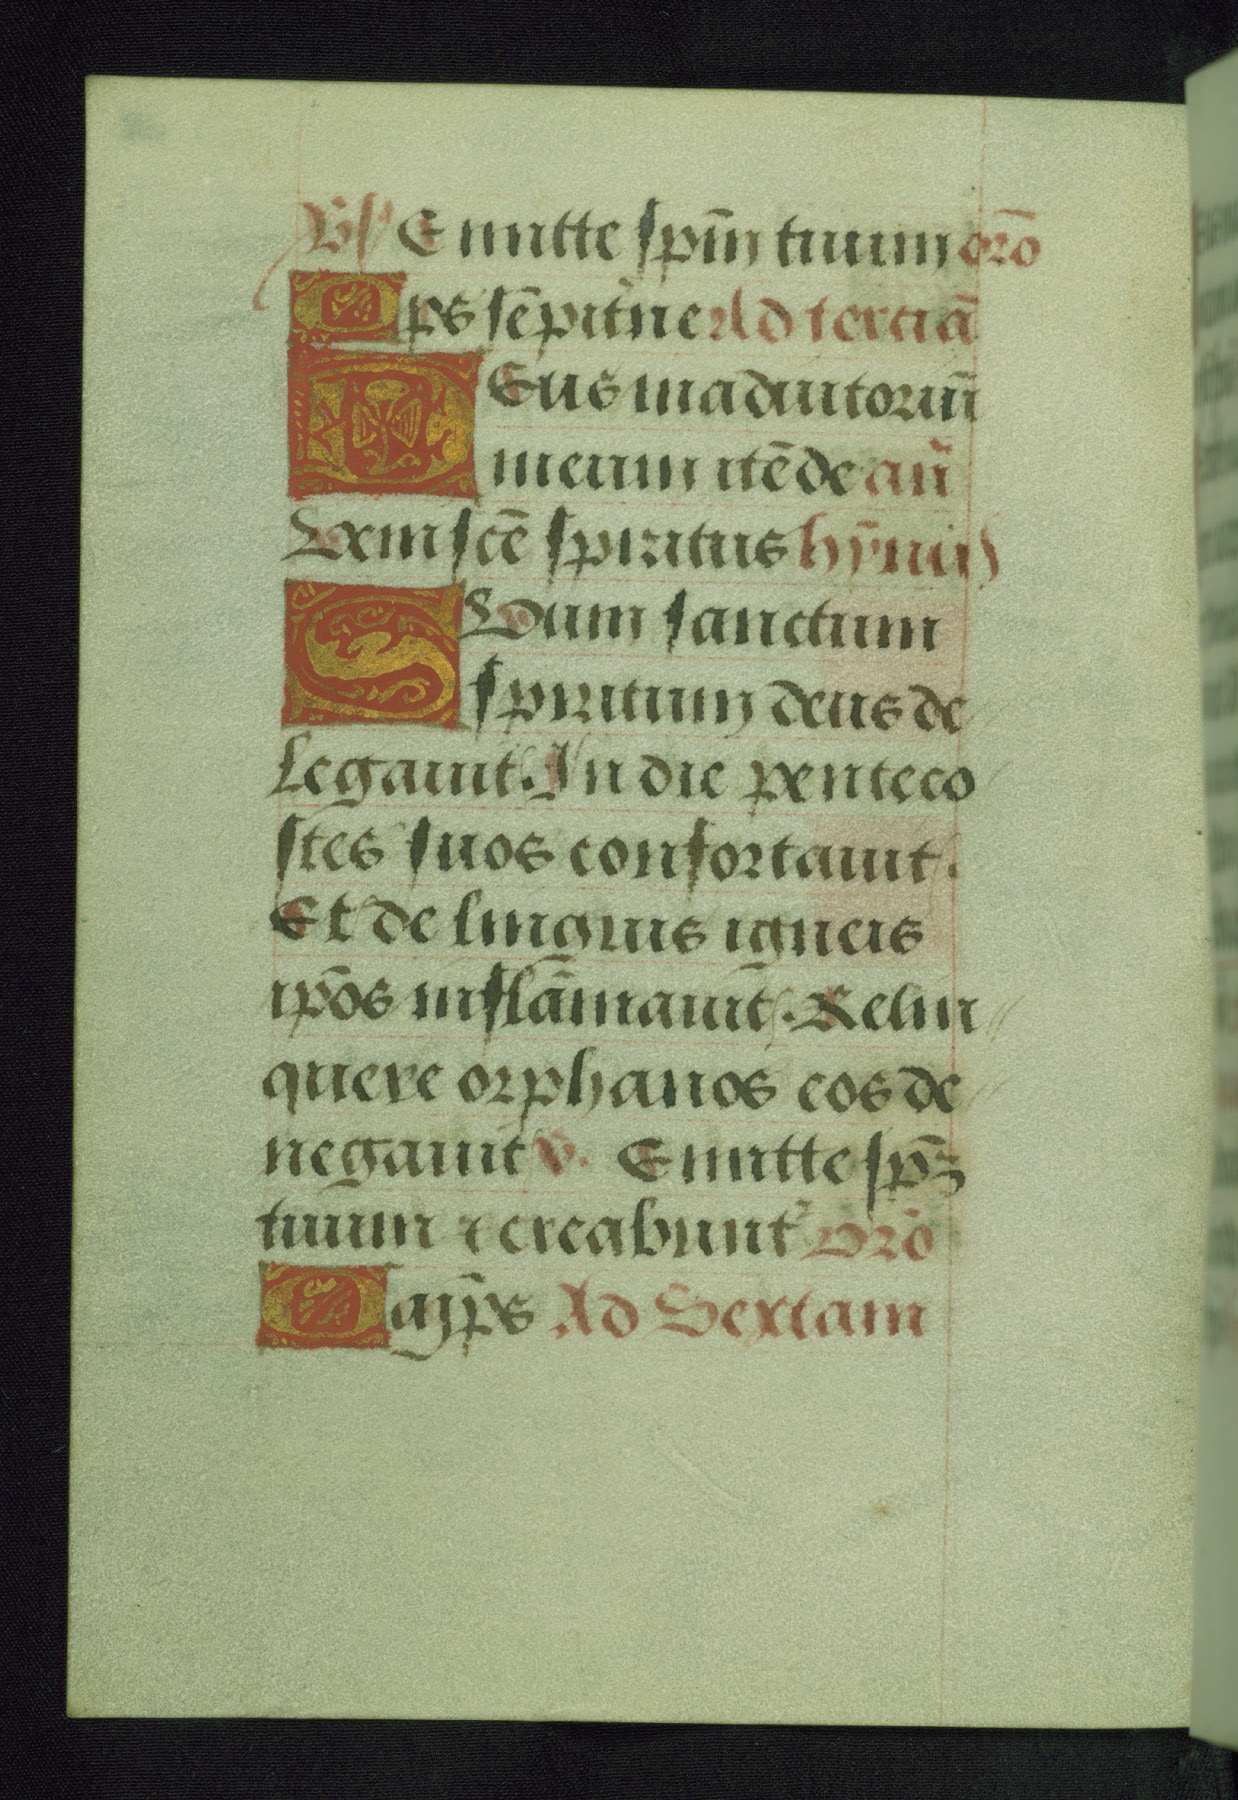 Vs Emitte spm̄ tuum oro͞
Ops sēpit'ne Ad terciā
Deus in adiutoriū
meum itēde an̄
Vem scē spiritus hȳnus
Suum sanctum
spiritum deus de
legauit. In die penteco
stes suos confortauit.
Et de linguis igneis
ip̄os inflāmauit. Relin
quere orphanos eos de
negauit v. Emitte sp̄m
tuum ⁊ creabunt' Orō
Oīps Ad Sextam